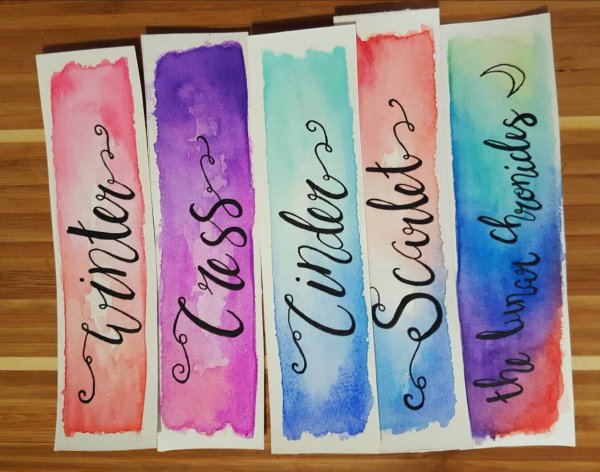 Winter
Cress
Cinder
Scarlet
the lunar chronicles